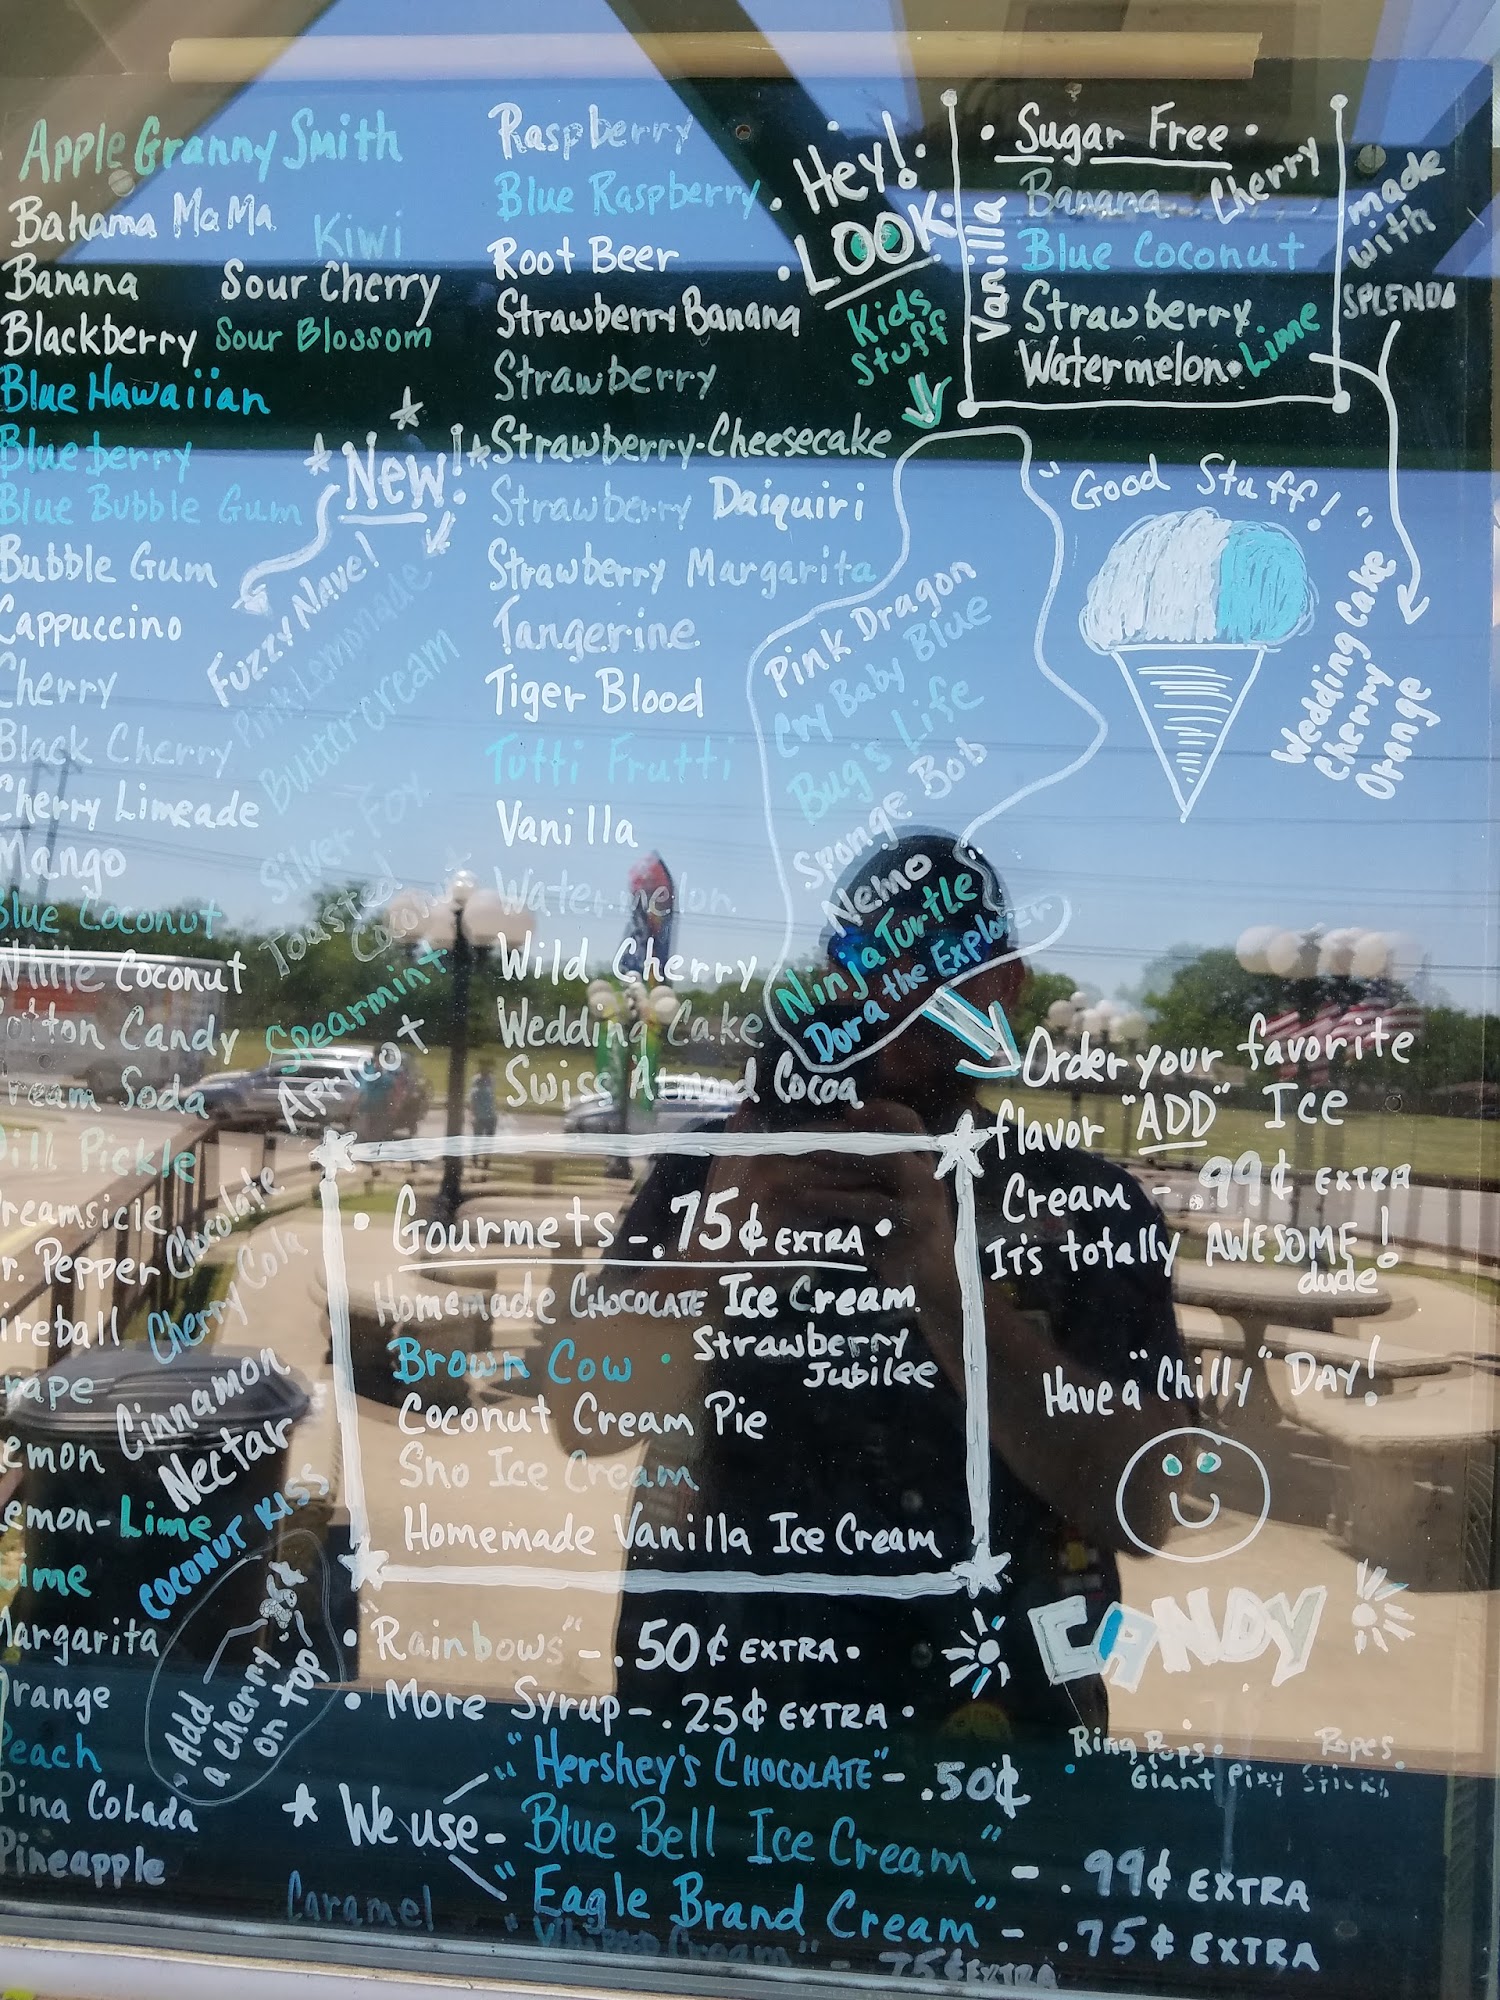 Apple Granny Smith
Bahama MaMa
Kiwi
Banana
Sour Cherry
Blackberry
Sour Blossom
Blue Hawaiian
Blueberry
Blue Bubble Gum
Bubble Gum
Cappuccino
Cherry
Black Cherry
Cherry Limeade
Mango
Blue Coconut
White Coconut
Cotton Candy
Cream Soda
Dill Pickle
reamsicle
r. Pepper
ireball
rape
emon
emon-Lime
Lime
Margarita
Orange
Peach
Pina Colada
Pineapple
New!
Fuzzy Navel
Pink Lemonade
Buttercream
Silver Fox
Toasted
Coconut
Spearmint
Apricot
Chocolate
Cherry Cola
Cinnamon
Nectar
COCONUT KISS
Add
a cherry
on top
Caramel
Raspberry
Blue Raspberry
Root Beer
Strawberry Banana
Strawberry
Strawberry-Cheesecake
Strawberry Daiquiri
Strawberry Margarita
Tangerine
Tiger Blood
Tutti Frutti
Vanilla
Watermelon
Wild Cherry
Wedding Cake
Swiss Almond Cocoa
Hey!
LOOK
Kids
Stuff
Pink Dragon
Cry Baby Blue
Bug's Life
Sponge Bob
Nemo
Ninja Turtle
Dora the Explorer
• Sugar Free •
Banana
Cherry
Vanilla
Blue Coconut
Strawberry
Watermelon • Lime
made
with
SPLENDA
"Good Stuff!"
Wedding Cake
Cherry
Orange
Order your favorite
flavor "ADD" Ice
Cream - .99¢ EXTRA
It's totally AWESOME!
dude
Have a "Chilly" DAY!
• Gourmets - .75¢ EXTRA •
Homemade CHOCOLATE Ice Cream
Brown Cow • Strawberry
Jubilee
Coconut Cream Pie
Sno Ice Cream
Homemade Vanilla Ice Cream
• "Rainbows" - .50¢ EXTRA •
• More Syrup - .25¢ EXTRA •
CANDY
Ring Pops • Ropes
• Giant Pixy Sticks
★ We use -
"Hershey's CHOCOLATE" - .50¢
Blue Bell Ice Cream" - .99¢ EXTRA
"Eagle Brand Cream" - .75¢ EXTRA
"Whipped Cream" - .75¢ EXTRA